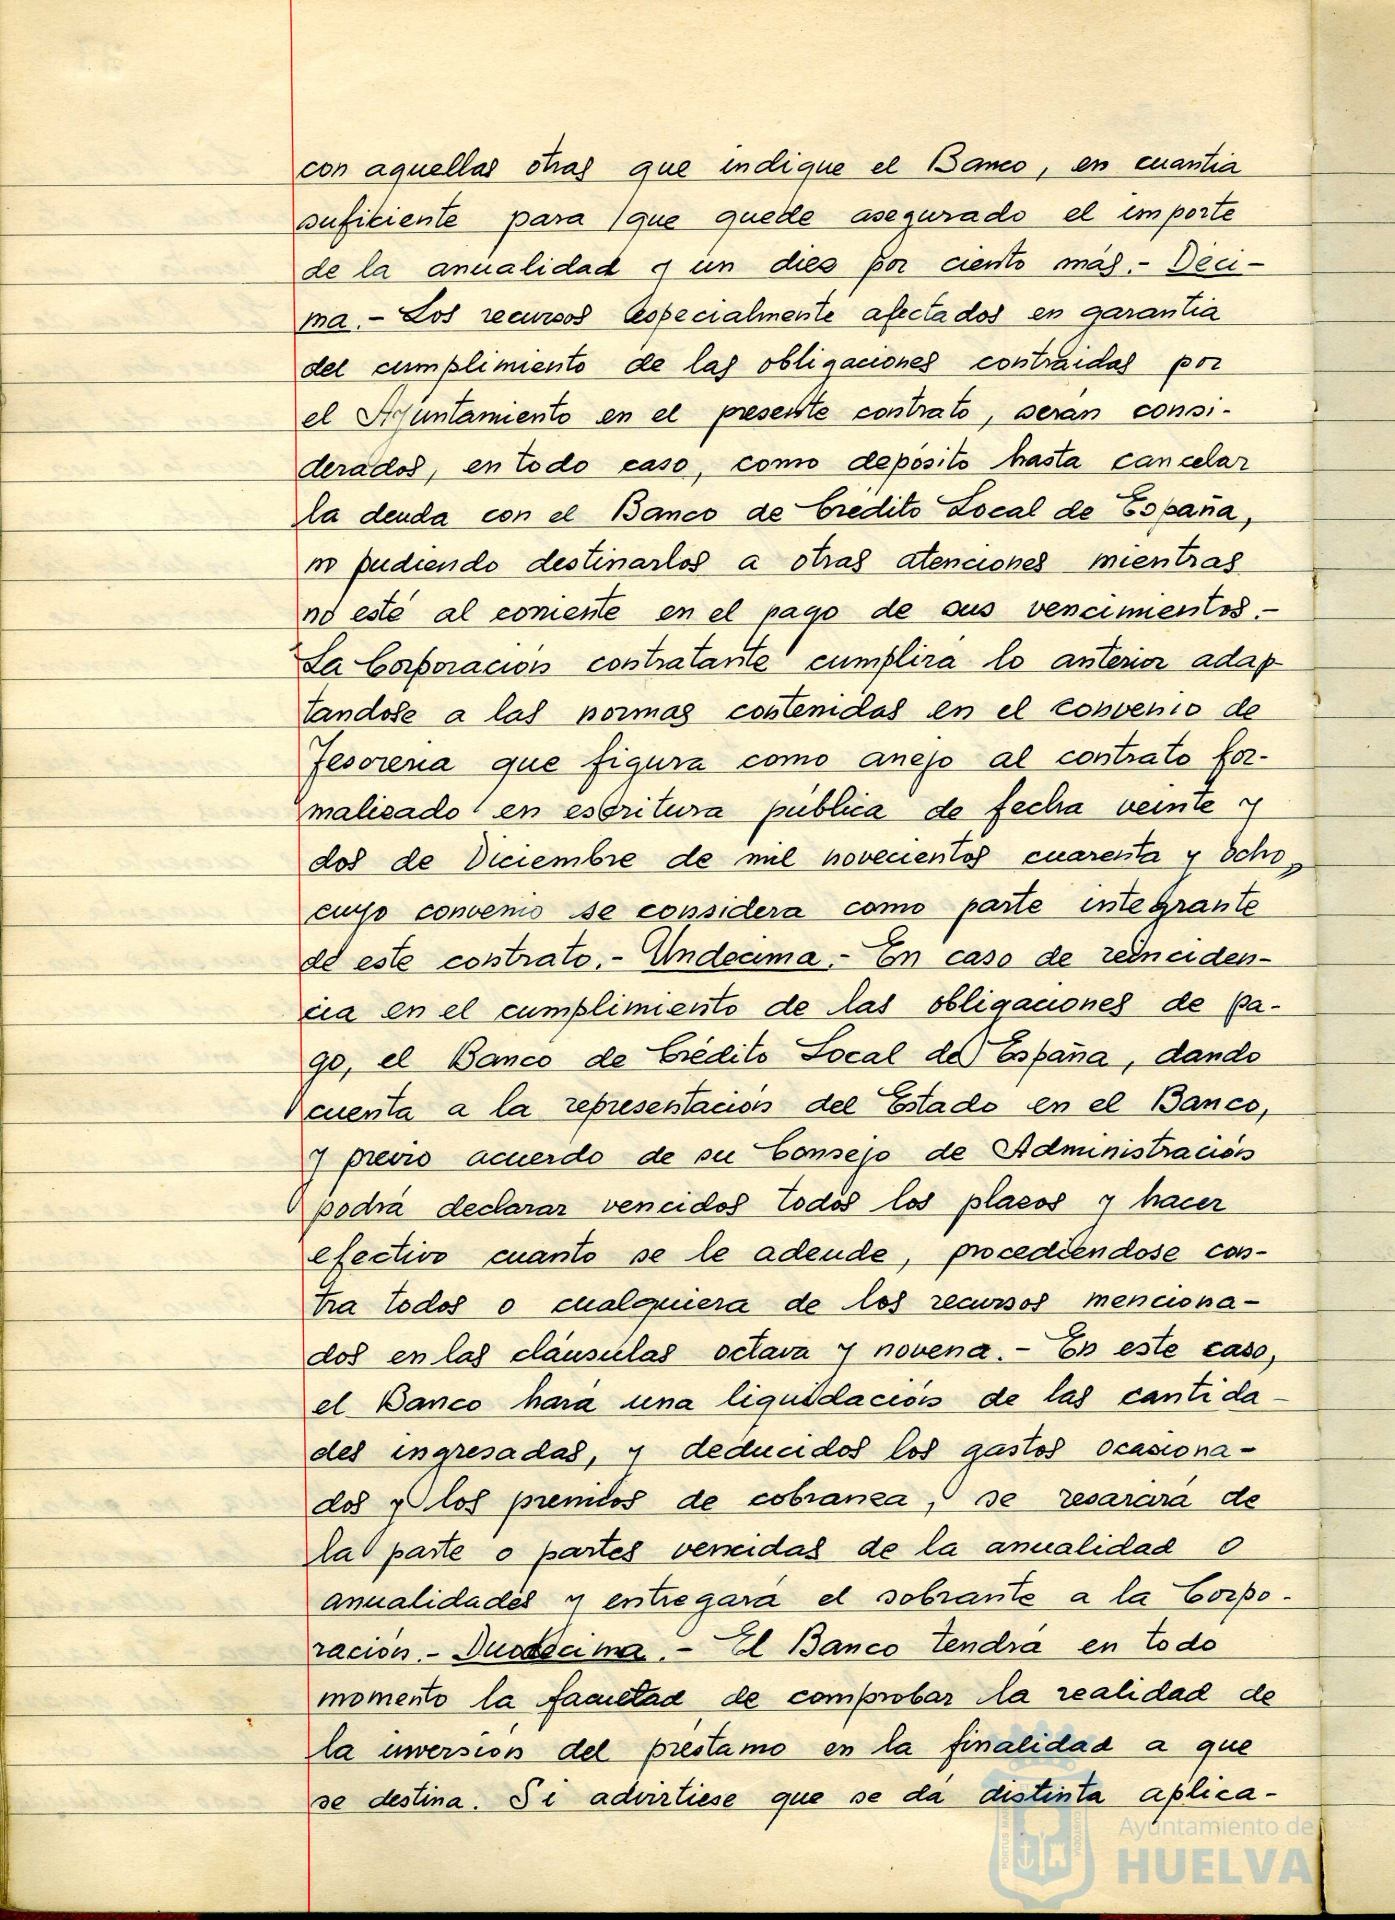 con aquellas otras que indique el Banco, en cuantia
suficiente para que quede asegurado el importe
de la anualidad y un diez por ciento más.- Déci-
ma.- Los recursos especialmente afectados en garantia
del cumplimiento de las obligaciones contraidas por
el Ayuntamiento en el presente contrato, serán consi-
derados, en todo caso, como depósito hasta cancelar
la deuda con el Banco de Crédito Local de España,
no pudiendo destinarlos a otras atenciones mientras
no esté al corriente en el pago de sus vencimientos.-
La Corporación contratante cumplirá lo anterior adap-
tandose a las normas contenidas en el convenio de
Tesoreria que figura como anejo al contrato for-
malizado en escritura pública de fecha veinte y
dos de Diciembre de mil novecientos cuarenta y ocho,
cuyo convenio se considera como parte integrante
de este contrato.- Undecima.- En caso de reinciden-
cia en el cumplimiento de las obligaciones de pa-
go, el Banco de Crédito Local de España, dando
cuenta a la representación del Estado en el Banco,
y previo acuerdo de su Consejo de Administración
podrá declarar vencidos todos los plazos y hacer
efectivo cuanto se le adeude, procediendose con-
tra todos o cualquiera de los recursos menciona-
dos en las cláusulas octava y novena.- En este caso,
el Banco hará una liquidación de las cantida-
des ingresadas, y deducidos los gastos ocasiona-
dos y los premios de cobranza, se resarcirá de
la parte o partes vencidas de la anualidad o
anualidades y entregará el sobrante a la Corpo-
ración.- Duodecima.- El Banco tendrá en todo
momento la facultad de comprobar la realidad de
la inversión del préstamo en la finalidad a que
se destina. Si advirtiese que se dá distinta aplica-
Ayuntamiento de
HUELVA